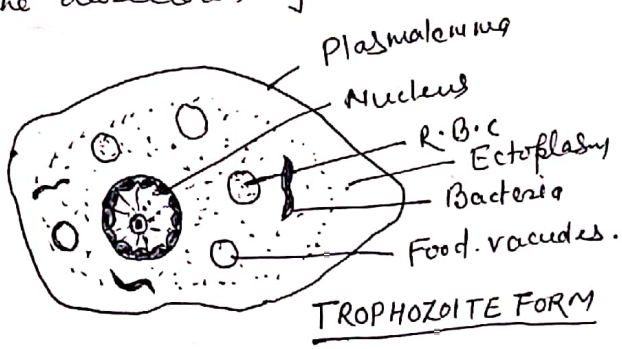 Plasmalemma
Nucleus
R.B.C
Ectoplasm
Bacteria
Food. vacuoles.
TROPHOZOITE FORM